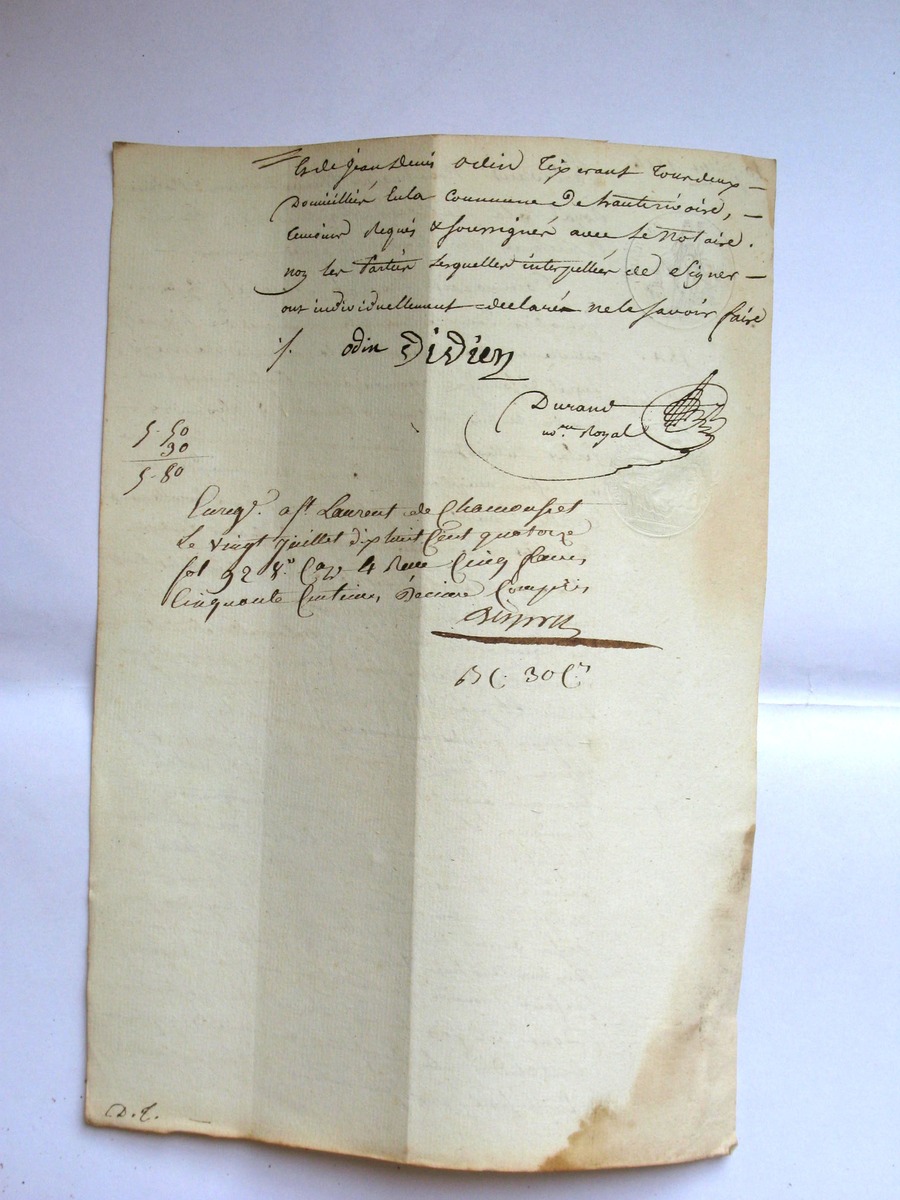 Et de jean denis odin Tixerant Tous deux
Domiciliés En la Commune de hauterivoire,
temoins Requis & soussignés avec le Notaire.
non les Parties Lesquelles interpellées de Signer
ont individuellement declarée ne le savoir faire
odin DiDien
Durand
no.re Royal
5-50
30
5-80
Enregé. a St. Laurent de Chamousset
Le vingt juillet dix huit Cent quatorze
fol 92 v.o Caze 4 Reçu Cinq francs
Cinquante Centimes, Décime Compris,
30 C.es
D. L.